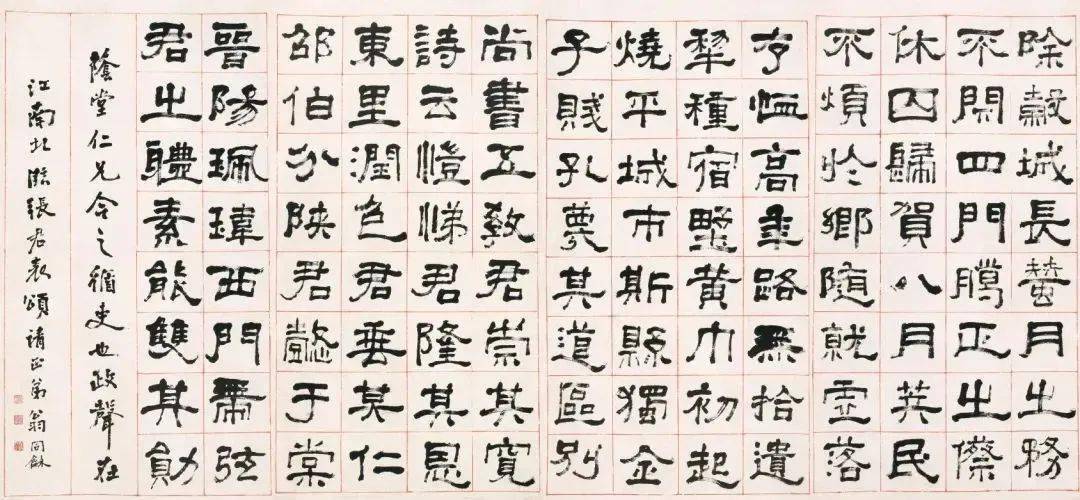 除穀城長蠶月之務
不閉四門臘正之傺
休囚歸賀八月筭民
不煩於鄉隨就虛落
存恤高年路無拾遺
犂種宿野黃巾初起
燒平城市斯縣獨全
子賤孔蔑其道區別
尚書五教君崇其寬
詩云愷悌君隆其恩
東里潤色君垂其仁
邵伯分陝君懿于棠
晉陽珮瑋西門帶弦
君之體素能雙其勛
蔭堂仁兄今之循吏也政聲在
江南北臨張君表頌請正弟翁同龢